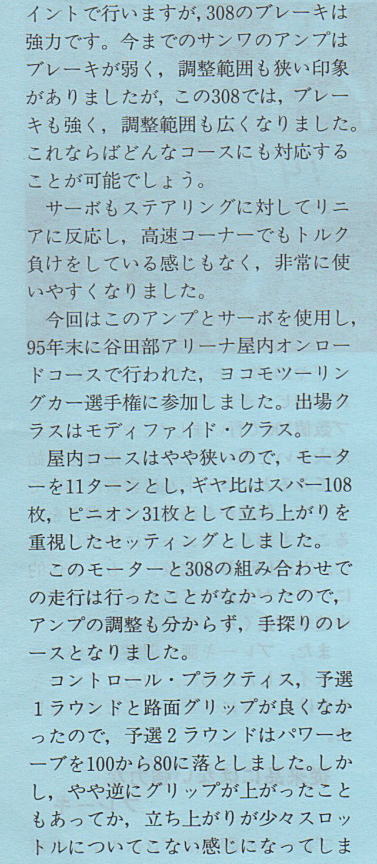 イントで行いますが,308のブレーキは
強力です。今までのサンワのアンプは
ブレーキが弱く，調整範囲も狭い印象
がありましたが，この308では，ブレー
キも強く，調整範囲も広くなりました。
これならばどんなコースにも対応する
ことが可能でしょう。
サーボもステアリングに対してリニ
アに反応し，高速コーナーでもトルク
負けをしている感じもなく，非常に使
いやすくなりました。
今回はこのアンプとサーボを使用し，
95年末に谷田部アリーナ屋内オンロー
ドコースで行われた，ヨコモツーリン
グカー選手権に参加しました。出場ク
ラスはモディファイド・クラス。
屋内コースはやや狭いので，モータ
ーを11ターンとし,ギヤ比はスパー108
枚，ピニオン31枚として立ち上がりを
重視したセッティングとしました。
このモーターと308の組み合わせで
の走行は行ったことがなかったので，
アンプの調整も分からず，手探りのレ
ースとなりました。
コントロール・プラクティス，予選
1ラウンドと路面グリップが良くなか
ったので，予選2ラウンドはパワーセ
ーブを100から80に落としました。しか
し，やや逆にグリップが上がったこと
もあってか，立ち上がりが少々スロッ
トルについてこない感じになってしま